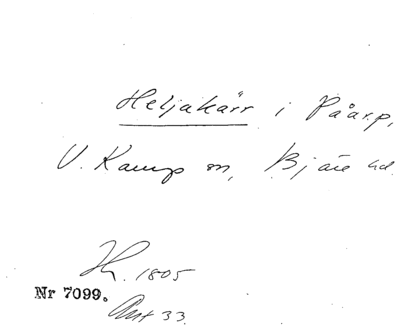 Heljakärr i Påarp,
V. Karup sn, Bjäre hd.
Hr. 1805
Nr 7099.
Ant 33